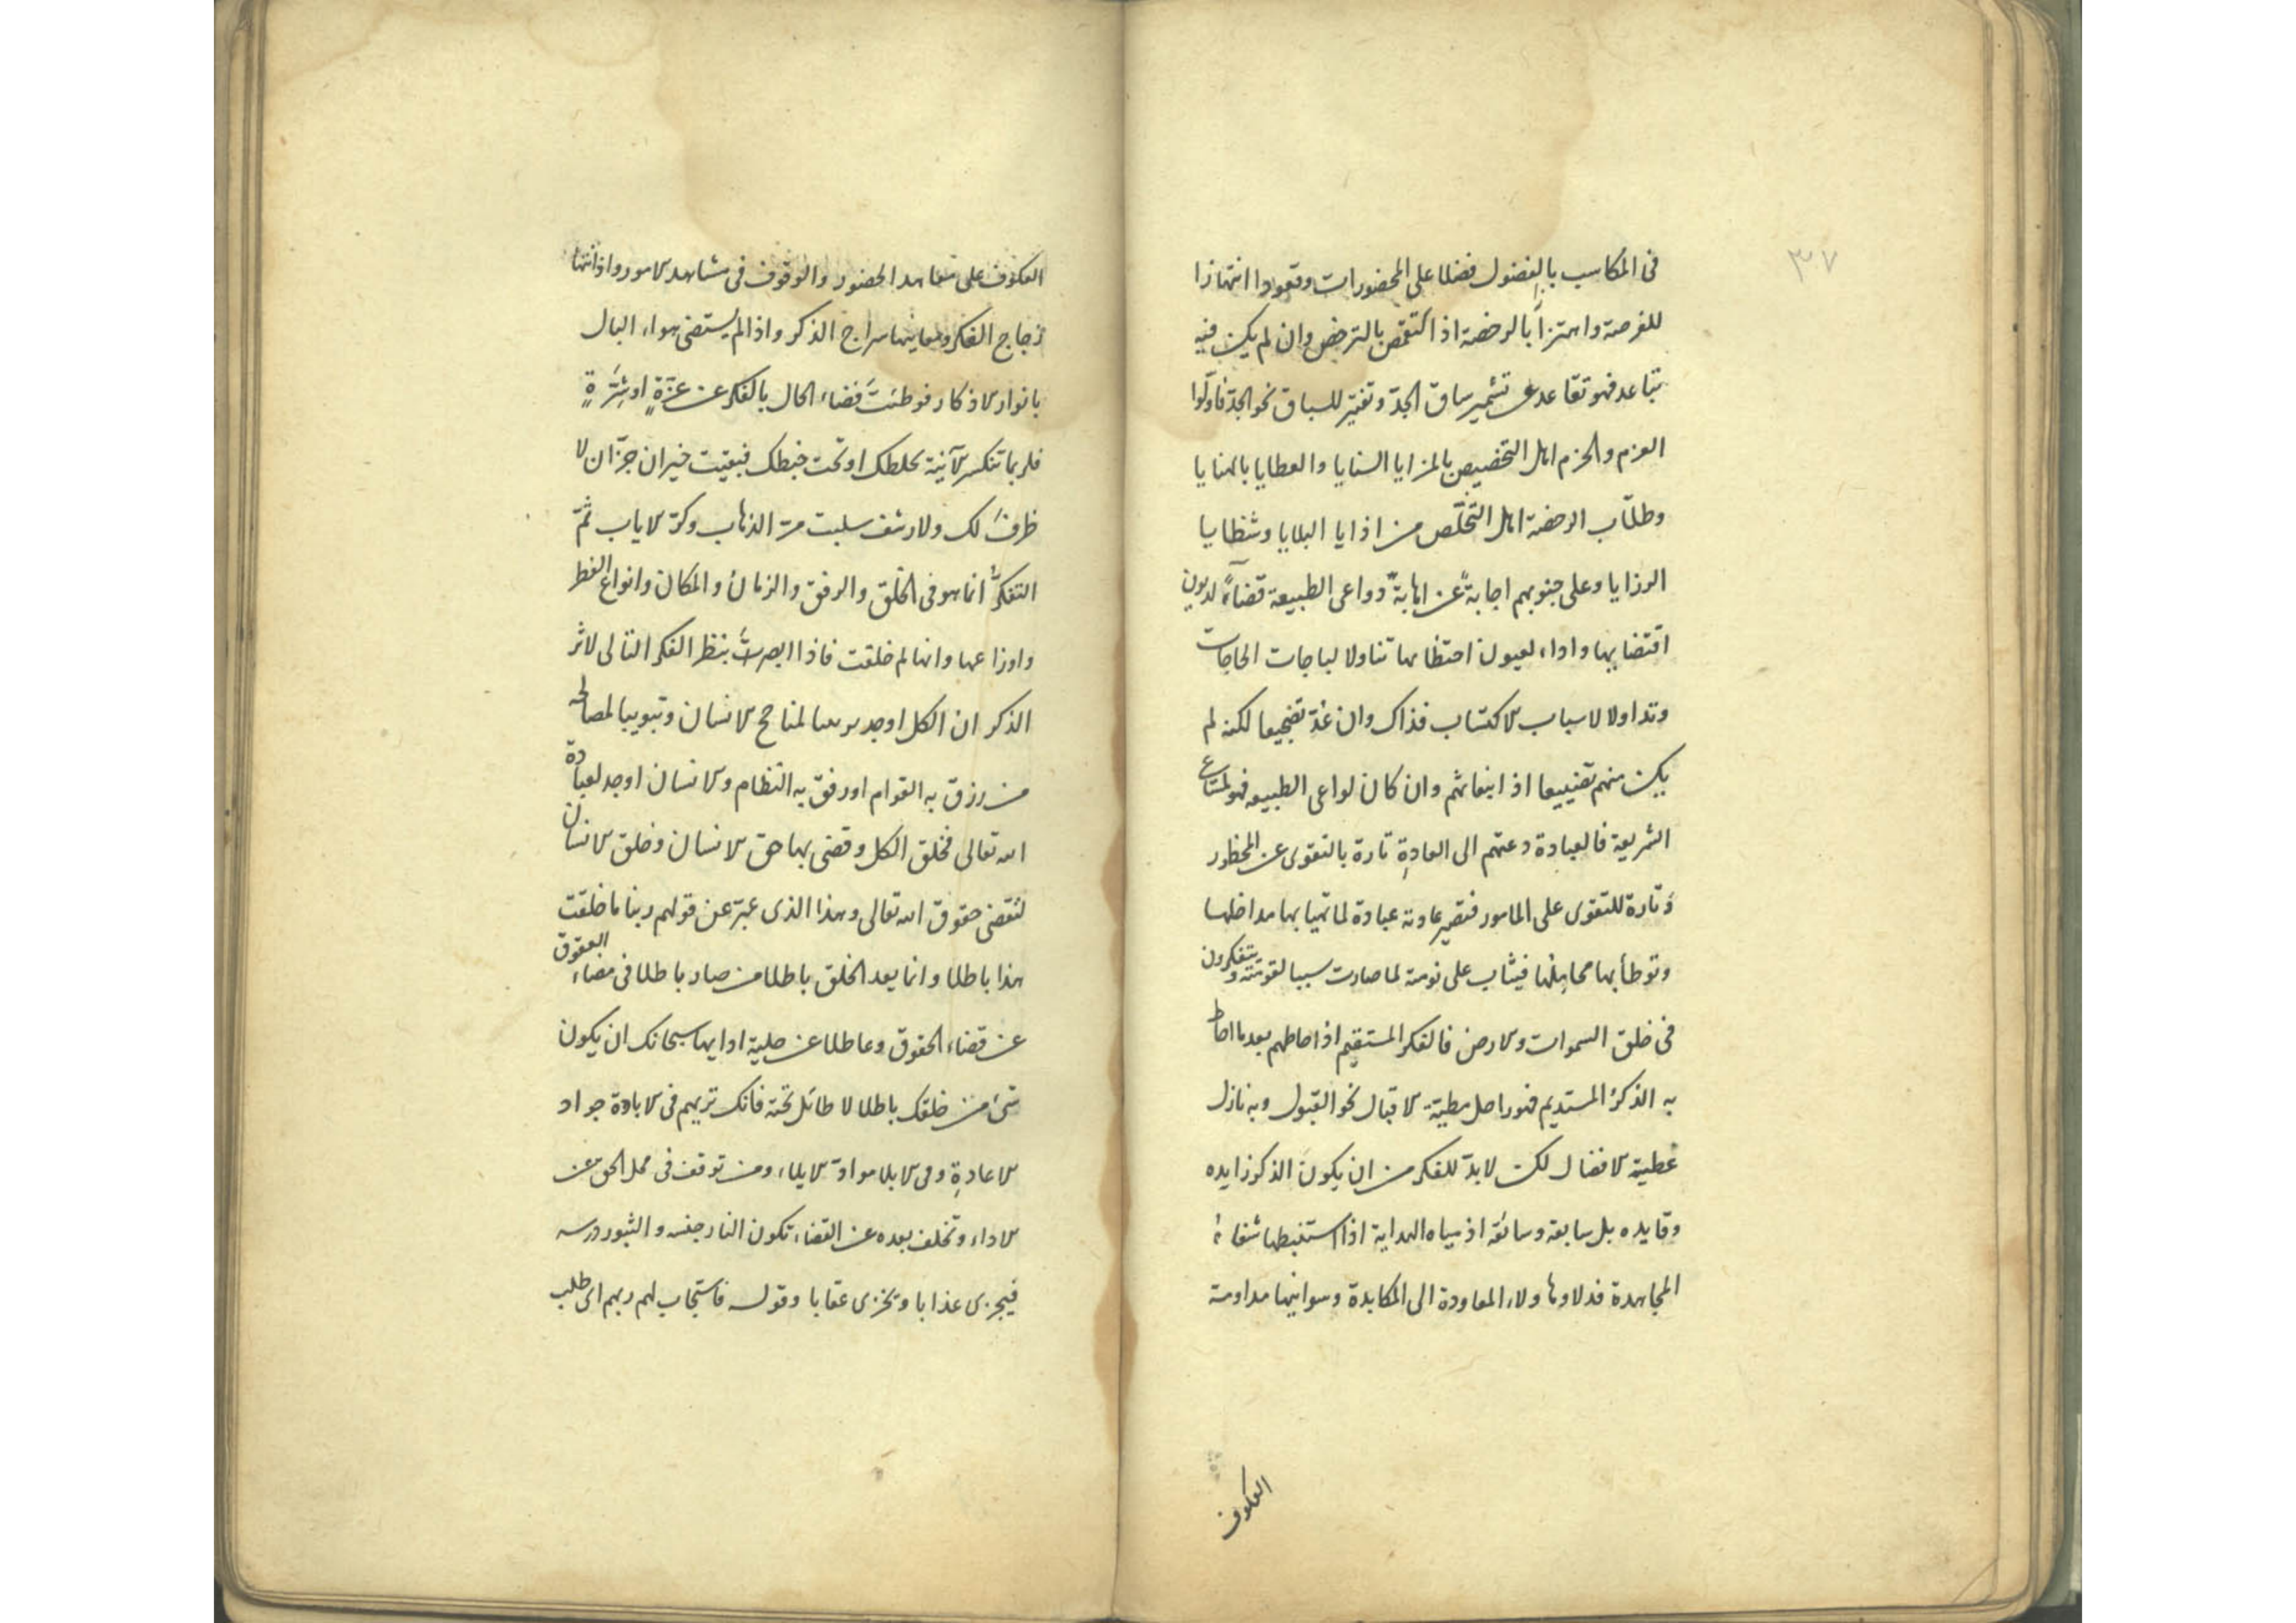 ٣٧
فى المكاسب بالفضول فضلا على المحضورات وقعودا انتهازا
للفرصة واهتزازا بالرخصة اذ التقمص بالترخص وان لم يكن فيه
تباعد فهو تقاعد عن تشمير ساق الجدّ وتفتير للسباق نحو الجدّ فاولوا
العزم والحزم اهل التخصيص بالمزايا السنايا والعطايا بالهنايا
وطلّاب الرخصة اهل التخلّص من اذايا البلايا وشظايا
الرزايا وعلى جنوبهم اجابة عن اهابة دواعى الطبيعة قضاء لديون
اقتضايها واداء لعيون احتظايها تناولا لباجات الحاجات
وتداولا لاسباب الاكتساب فذاك وان عدّ تضجيعا لكنه لم
يكن منهم تضييعا اذ انبعاثهم وان كان لواعى الطبيعه فهو لمتاع
الشريعة فالعبادة دعتهم الى العادةِ تارة بالتقوى عن المحظور
وتارة للتقوى على المامور فتصير عادته عبادة لما تهيا بها مداخلها
وتوطأ بها محاملها فيثاب على نومته لما صارت سببا لقومته ويتفكرون
فى خلق السموات والارض فالفكر المستقيم اذ احاطهم بعد ما احاط
به الذكر المستديم فهو راحل مطيّة الاقبال نحو القبول وبه نازل
عطية الافضال لكن لا بدّ للفكر من ان يكون الذكر زايده
وقايده بل سابقه وسائقه اذ مياه الهداية اذا استنبطها شفاه
المجاهدة فدلاوها ولاء المعاودة الى المكابدة وسوانيها مداومة
العكوف
العكوف على معاهد الحضور والوقوف فى مشاهد الامور واذ انتها
زجاج الفكر ومعاينها سراج الذكر واذا لم يستضى هواء البال
بانوار الاذكار فوطئتَ فضاء الحال بالفكر عن عزّةٍ او شِرّةٍ
فلربما تنكسر الآنية بخلطك او تحت خبطك فبقيت خيران جرّان لا
ظرف لك ولا رشف سلبت مرّ الذهاب وكرّ الاياب ثمّ
التفكّر انما هو فى الخلق والرفق والزمان والمكان وانواع الفطر
واوزاعها وانها لم خلقت فاذا ابصرت بنظر الفكر التالى لاثر
الذكر ان الكل اوجد لمناجح الانسان وتبويبا لمصالحه
من رزق به القوام او رفق به النظام والانسان اوجد لعبادة
الله تعالى فخلق الكل وقضى بها حق الانسان وخلق الانسان
لتقضى حقوق الله تعالى وهذا الذى عبّر عن قولهم ربنا ما خلقت
هذا باطلا وانما يعد الخلق باطلا من صار باطلا فى مضاء العقوق
عن قضاء الحقوق وعاطلا عن حلية ادايها سبحانك ان يكون
شئ من خلقك باطلا لا طائل تحته فانك تريهم فى الابادة جواد
الاعادةِ وفى الابلا موادّ الايلاء ومن توقف فى محل الحق عن
الاداء وتخلف بعده عن القضاء تكون النار حفسه والثبور درسه
فيجزى عذابا ويخزى عقابا وقوله فاستجاب لهم ربهم اى طلب